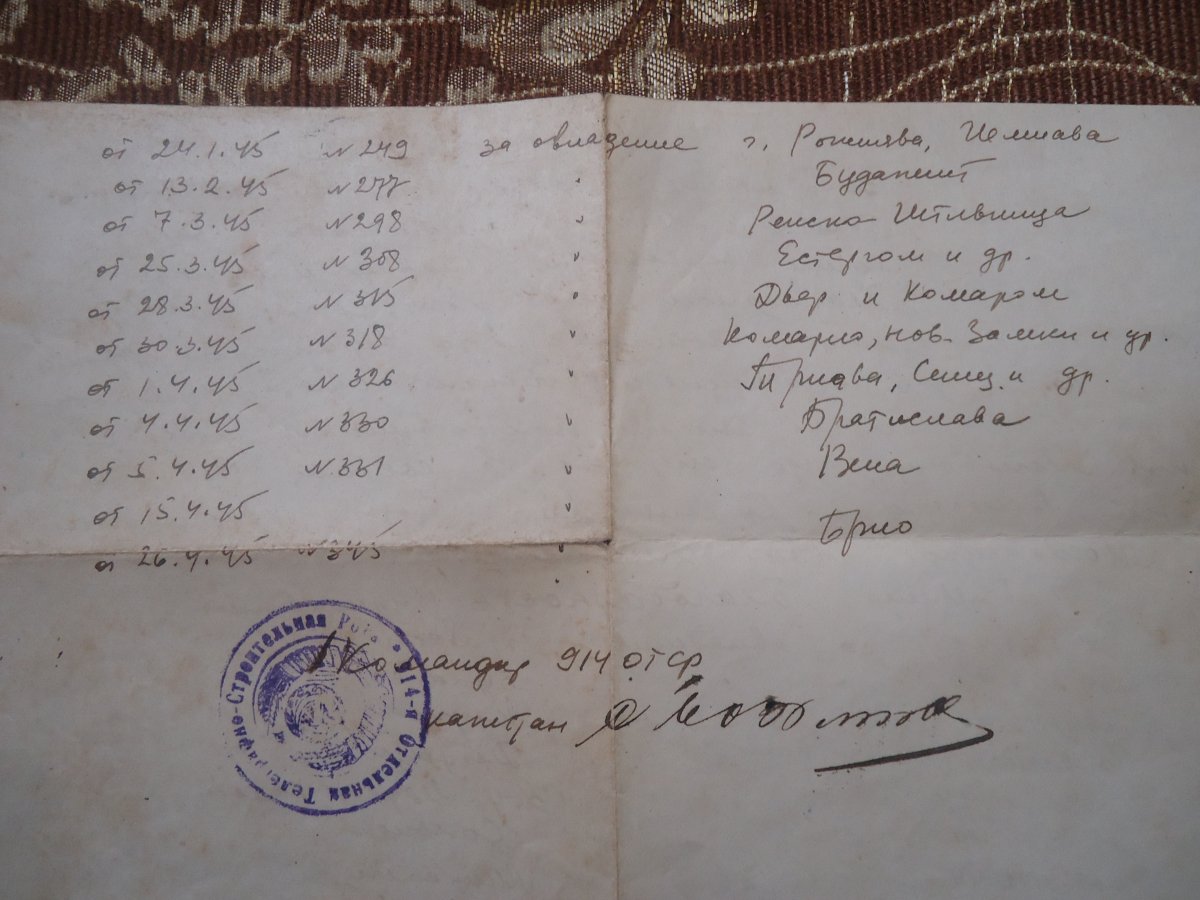 от 24.1.45 №249 за овладение г. Рожнява, Иелшава
от 13.2.45 №277 " Будапешт
от 7.3.45 №298 "
от 25.3.45 №308 " Естергом и др.
от 28.3.45 №315 " Дьер и Комаром
от 30.3.45 №318 " Комарно, нов. Замки и др.
от 1.4.45 №326 " Трнава, Сенец и др.
от 4.4.45 №330 " Братислава
от 5.4.45 №331 " Вена
от 15.4.45 "
от 26.4.45 №345 " Брно
Командир 914 ОТСР
капитан
914-я Отдельная Телеграфно-Строительная Рота